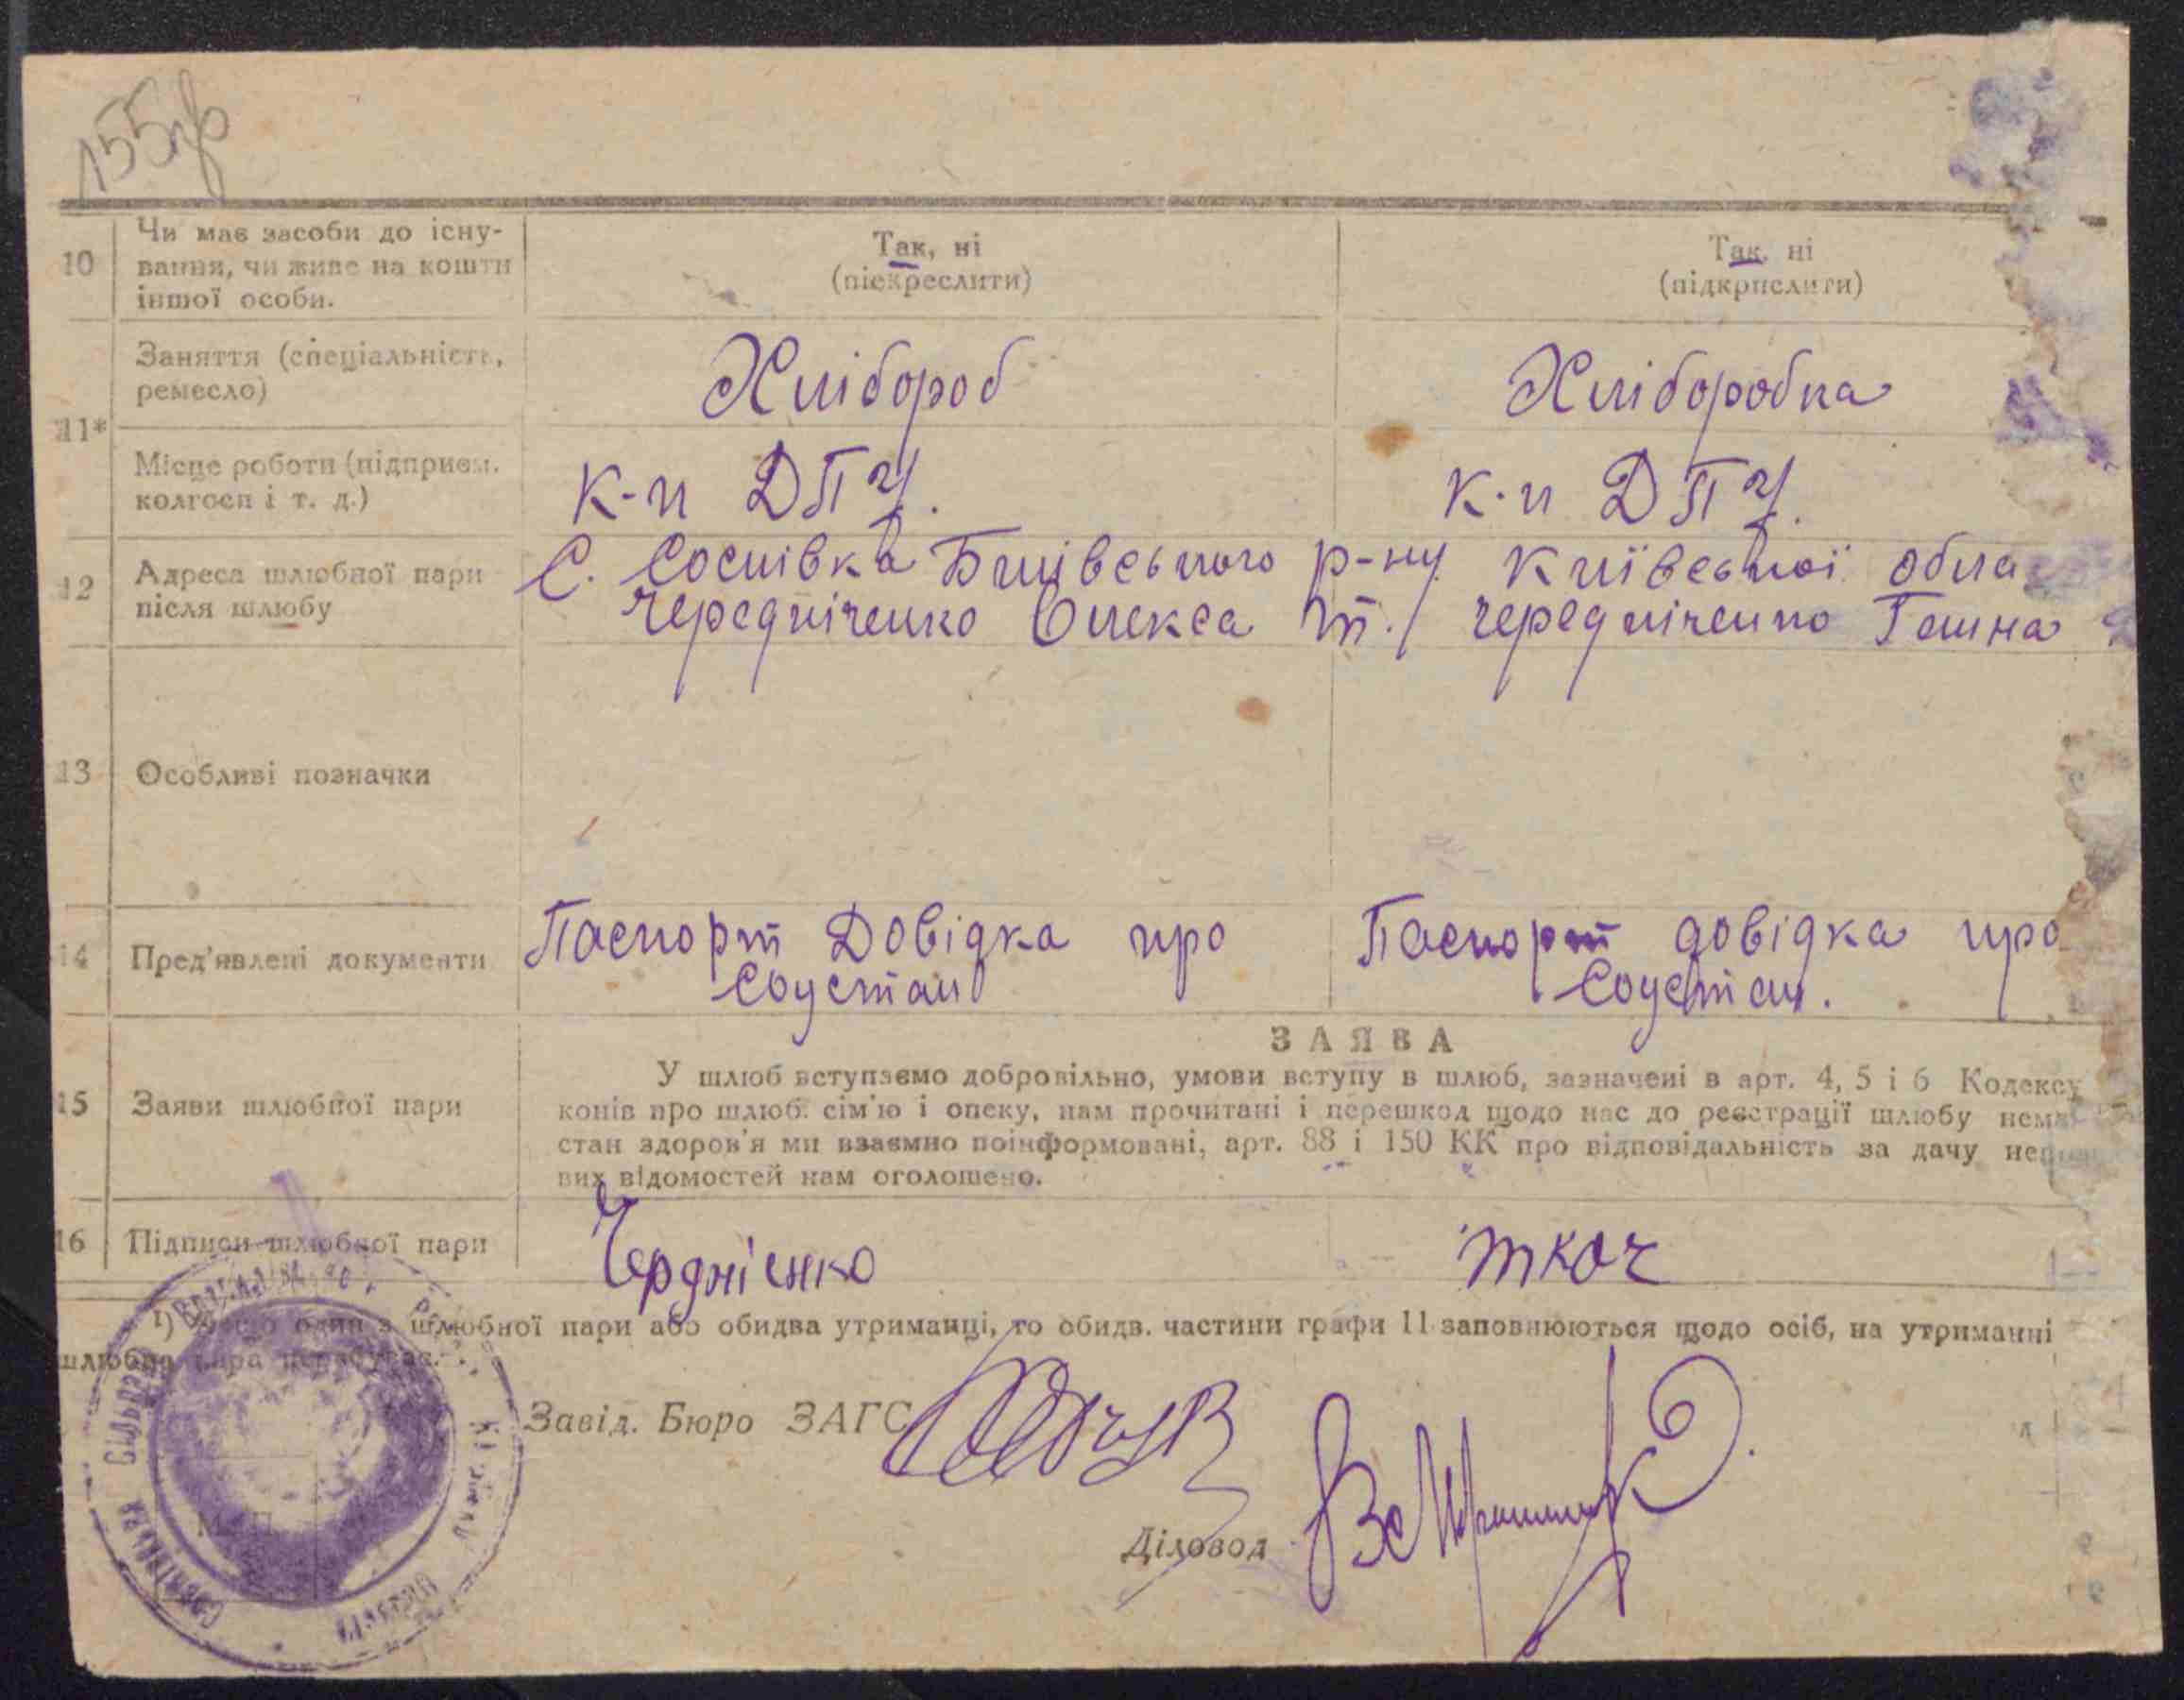 155зв
10
Чи має засоби до існу-
вання, чи живе на кошти
іншої особи.
Так, ні
(піекреслити)
Так, ні
(підкрислити)
11*
Заняття (спеціальність,
ремесло)
Хлібороб
Хліборобка
Місце роботи (підприєм.
колгосп і т. д.)
к-п ДПУ.
к-п ДПУ.
12
Адреса шлюбної пари
після шлюбу
С. Соснівка Бишівського р-ну Київської обла
Чередніченко Олекса Т. / Чередніченко Ганна
13
Особливі позначки
14
Пред'явлені документи
Паспорт Довідка про
Соцстан
Паспорт довідка про
Соцстан.
15
Заяви шлюбної пари
ЗАЯВА
У шлюб вступаємо добровільно, умови вступу в шлюб, зазначені в арт. 4, 5 і 6 Кодексу
конів про шлюб. сім'ю і опеку, нам прочитані і перешкод щодо нас до реєстрації шлюбу нема
стан здоров'я ми взаємно поінформовані, арт. 88 і 150 КК про відповідальність за дачу
вих відомостей нам оголошено.
16
Підписи шлюбної пари
Чердніенко
ткач
1) один з шлюбної пари або обидва утриманці, то обидв. частини графи 11 заповнюються щодо осіб, на утриманні
шлюбна пара
Завід. Бюро ЗАГС
Діловод
М. П.